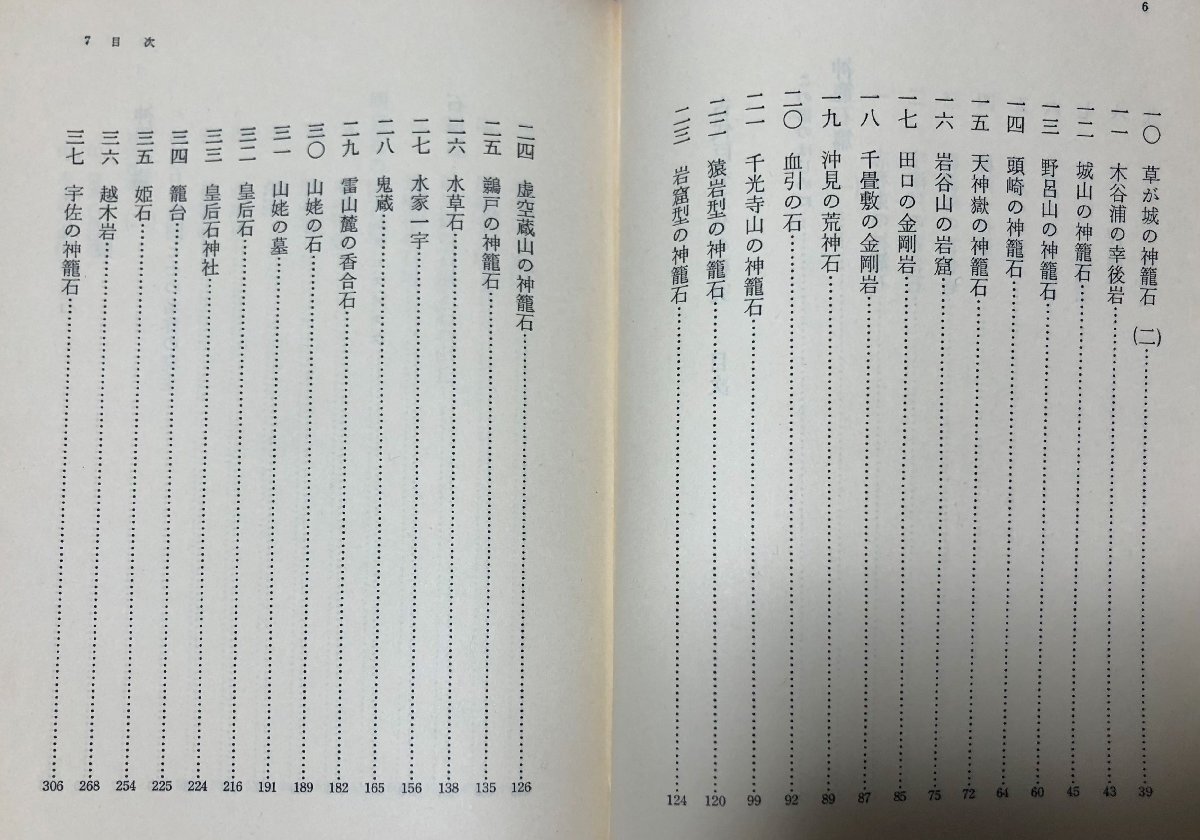 6
一〇 草が城の神籠石(二)……39
一一 木谷浦の幸後岩……43
一二 城山の神籠石……45
一三 野呂山の神籠石……60
一四 頭崎の神籠石……64
一五 天神嶽の神籠石……72
一六 岩谷山の岩窟……75
一七 田口の金剛岩……85
一八 千畳敷の金剛岩……87
一九 沖見の荒神石……89
二〇 血引の石……92
二一 千光寺山の神籠石……99
二二 猿岩型の神籠石……120
二三 岩窟型の神籠石……124
7 目次
二四 虚空蔵山の神籠石……126
二五 鵜戸の神籠石……135
二六 水草石……138
二七 水家一宇……156
二八 鬼蔵……165
二九 雷山麓の香合石……182
三〇 山姥の石……189
三一 山姥の墓……191
三二 皇后石……216
三三 皇后石神社……224
三四 籠台……225
三五 姫石……254
三六 越木岩……268
三七 宇佐の神籠石……306